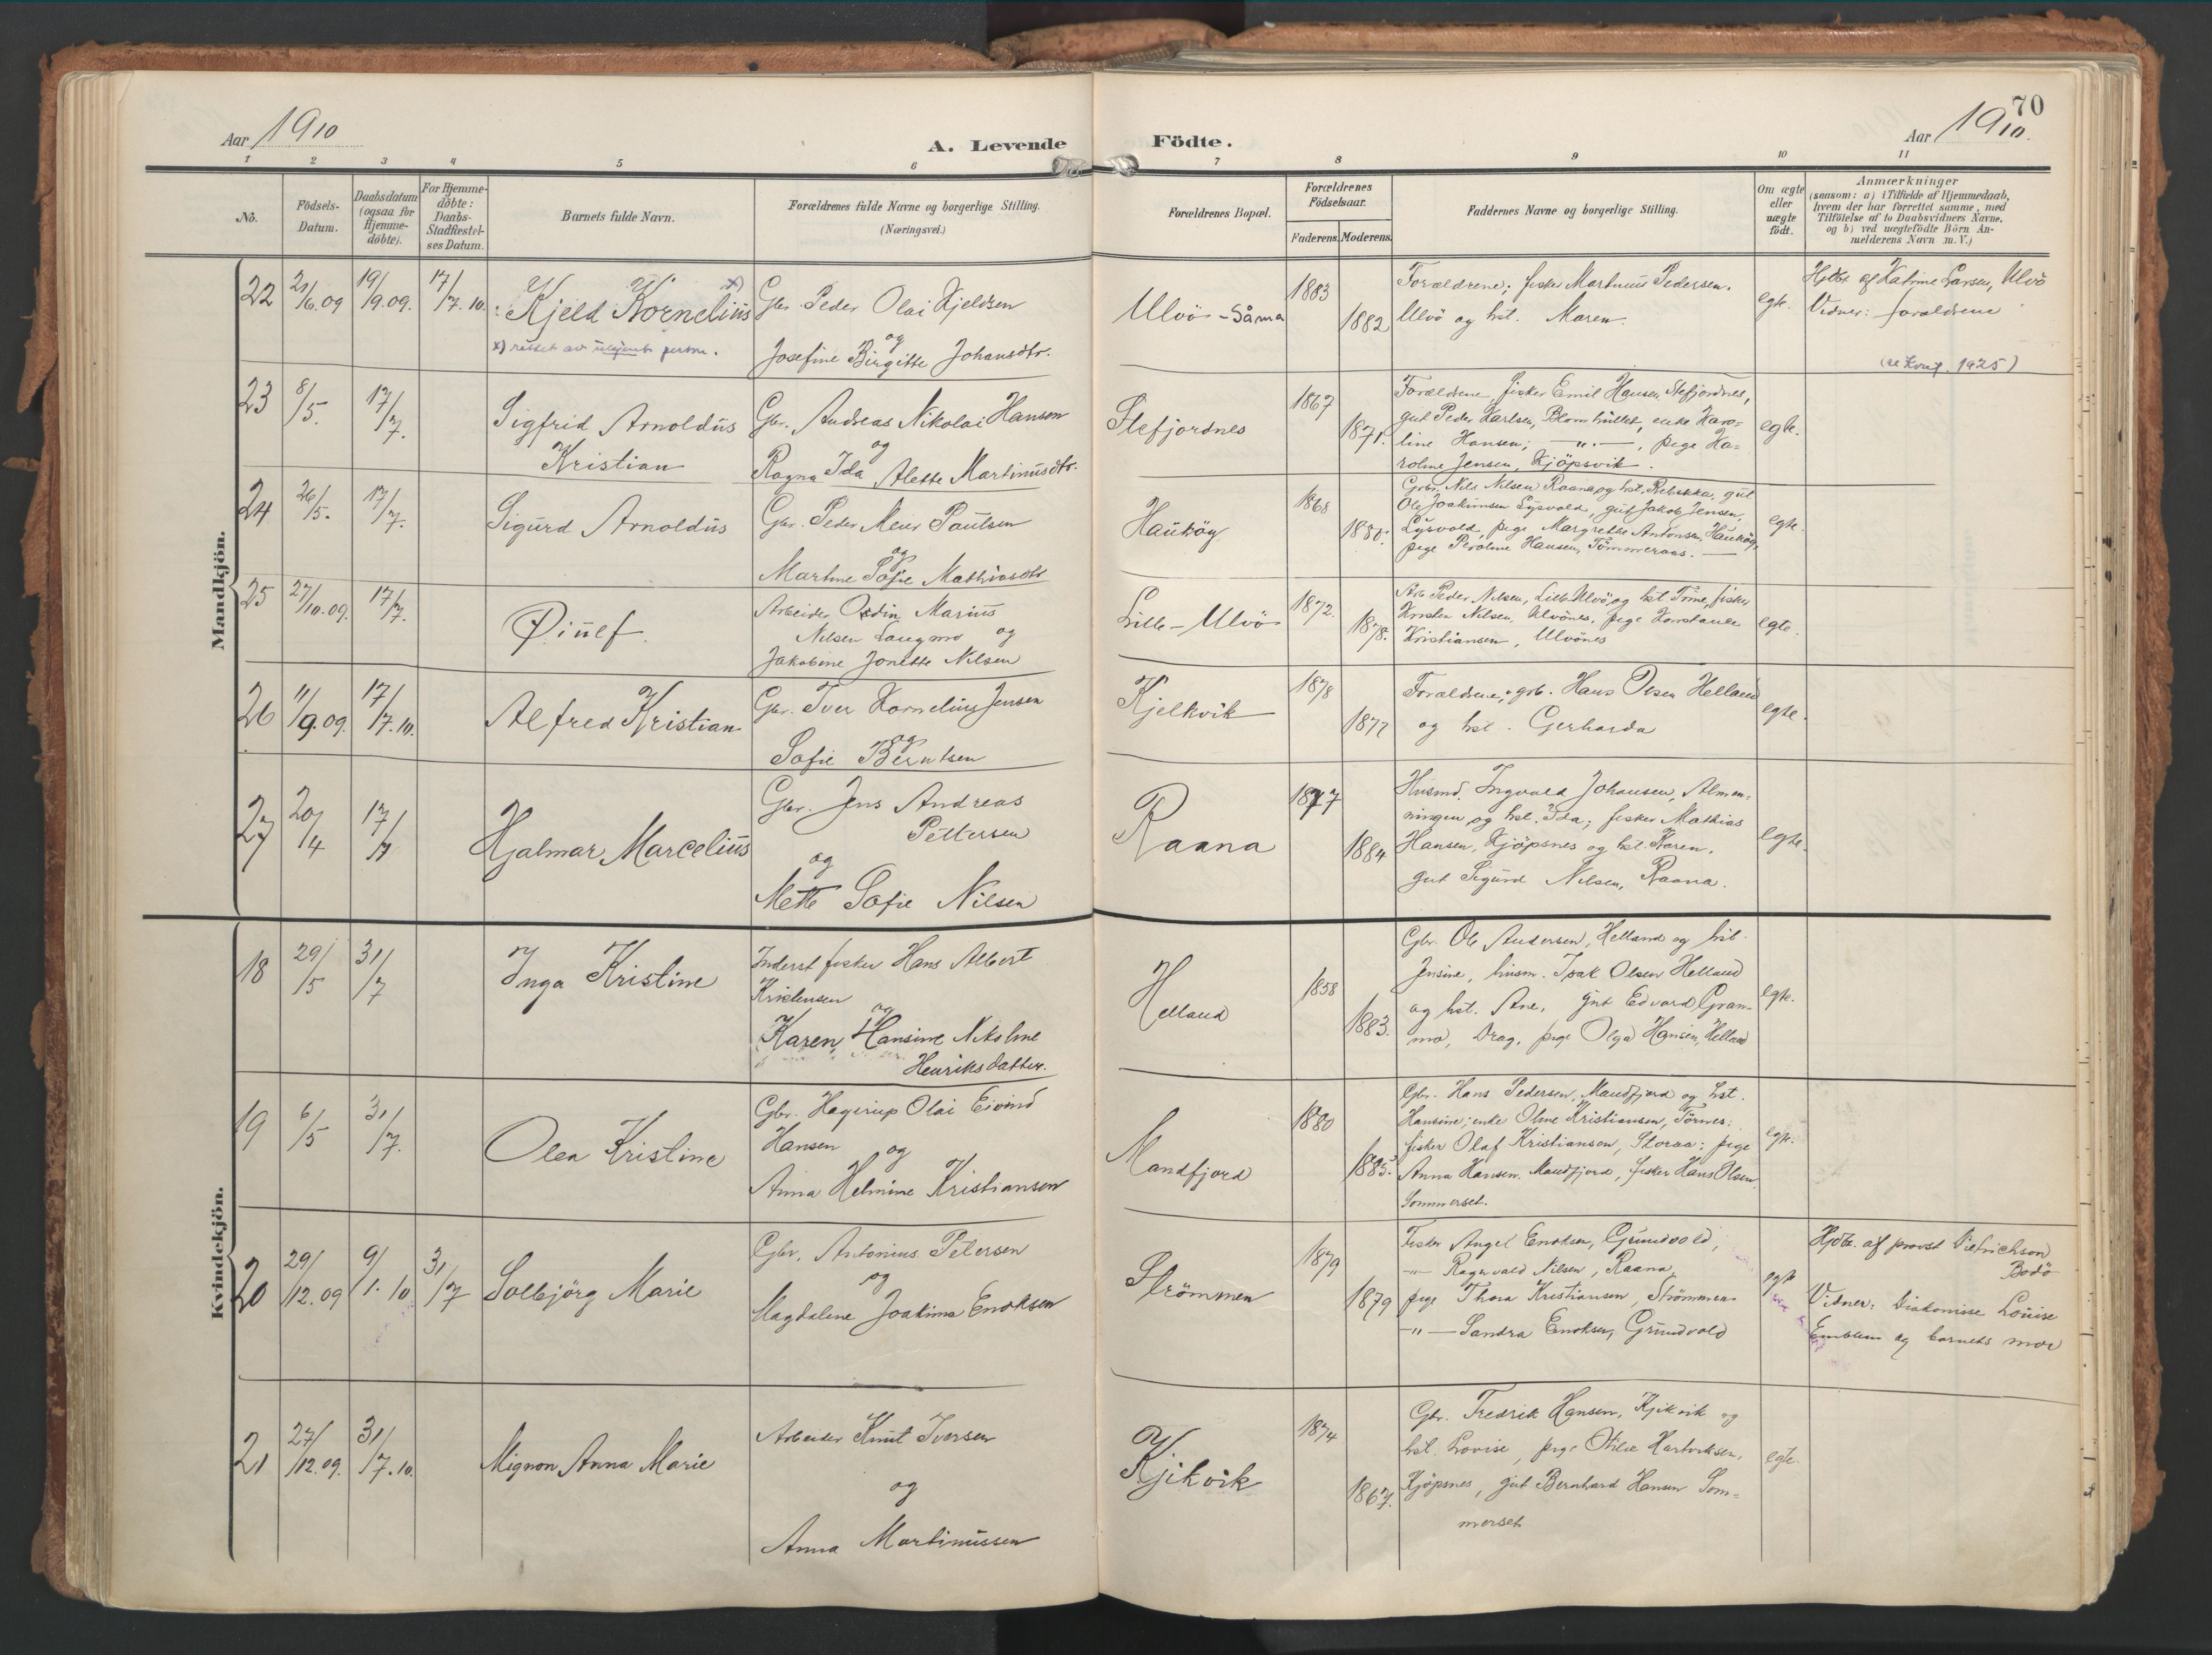 Aar 1910
A. Levende
1 2 3 4 5 6
Nō.
Födsels-
Datum.
Daabsdatum
(ogsaa for
Hjemme-
döbte).
For Hjemme-
döbte:
Daabs-
Stadfæstel-
ses Datum.
Barnets fulde Navn.
Forældrenes fulde Navne og borgerlige Stilling.
(Næringsvei.)
Mandkjön.
22 21/6.09 19/9.09. 17/7.10. Kjeld Kornelius x)
x) rettet av ukjent person.
Gbr. Peder Olai Kjeldsen
og
Josefine Birgitte Johansdtr.
23 8/5. 17/7. Sigfrid Arnoldus
Kristian
Gbr. Andreas Nikolai Hansen
og
Ragna Ida Alette Martinusdtr.
24 26/5. 17/7. Sigurd Arnoldus
Gbr. Peder Meier Paulsen
og
Martine Sofie Mathiasdtr
25 27/10.09. 17/7.
Arbeider Odin Marius
Nilsen Langmo og
Jakobine Jonette Nilsen
26 11/9.09. 17/7.10. Alfred Kristian
Gbr. Iver Kornelius Jensen
og
Sofie Berntsen
27 20/4 17/7 Hjalmar Marcelius
Gbr. Jens Andreas
Pettersen
og
Mette Sofie Nilsen
Kvindekjön.
18 29/5 31/7 Inga Kristine
Inderst fisker Hans Albert
Kristensen
og
Karen Hansine Nikoline
Henriksdatter.
19 6/5 31/7. Olea Kristine
Gbr. Hagerup Olai Eivind
Hansen og
Anna Helmine Kristiansen
20 29/12.09 9/1.10 31/7 Solbjörg Marie
Gbr. Antonius Petersen
og
Magdalene Joakima Enoksen
21 27/12.09. 31/7.10. Mignon Anna Marie
Arbeider Knut Iversen
og
Anna Martinussen
70
Födte.
Aar 1910.
7 8 9 10 11
Forældrenes Bopæl.
Forældrenes
Födselsaar.
Faderens. Moderens.
Faddernes Navne og borgerlige Stilling.
Om ægte
eller
uægte
födt.
Anmærkninger
(saasom: a) i Tilfælde af Hjemmedaab,
hvem der har forrettet samme, med
Tilföielse af to Daabsvidners Navne,
og b) ved uægtefödte Börn An-
melderens Navn m. V.)
Ulvö - Såma 1883 1882
Forældrene; fisker Martinus Pedersen,
Ulvö og hst. Maren.
egte.
Hjdbt af Katrine Larsen, Ulvö
Vidner: forældrene
(se konf. 1925)
Stefjordnes 1867 1871.
Forældrene, fisker Emil Hansen, Stefjordnes,
gut Peder Karlsen, Blomhullet, enke Karo-
line Hansen; — " —, pige Ka-
roline Jensen, Kjöpsvik.
egte.
Hauköy 1868 1880.
Grbr. Nils Nilsen Raana og hst. Rebekka, gut
Ole Joakimsen Lysvold, gut Jakob Jensen,
Lysvold, pige Margrethe Antonsen, Hauköy,
pige Peroline Hansen, Tömmeraas. —
egte.
Lille-Ulvö 1872. 1878.
Arb. Peder Nilsen, Lille Ulvö, og hst Trine, fisker
Kristen Nilsen, Ulvönes, pige Konstance
Kristiansen, Ulvönes
egte.
Kjelkvik 1878 1877
Forældrene, grb. Hans Olsen Helland
og hst. Gerharda
egte.
Raana 1877 1884
Husmd. Ingvald Johansen, Almen-
ningen og hst. Ida; fisker Mathias
Hansen, Kjöpsnes og hst. Karen.
gut Sigurd Nilsen, Raana.
egte.
Helland 1858 1883.
Gbr. Ole Andersen, Helland og hst.
Jensine, husm. Isak Olsen Helland
og hst. Ane, gut Edvard Gram-
mo, Drag, pige Olga Hansen, Helland
egte.
Mandfjord 1880 1885.
Gbr. Hans Pedersen, Mandfjord og hst.
Hansine; enke Oline Kristiansen, Törnes;
fisker Olaf Kristiansen, Storaa; pige
Anna Hansen, Mandfjord, fisker Hans Olsen,
Sommerset.
egte.
Strömmen 1879 1879
Fisker Angel Enoksen, Grundvold,
— " — Ragnvald Nilsen, Raana,
pige Thora Kristiansen, Strömmen
— " — Sandra Enoksen, Grundvold
egte
Hjdbt. af provst Dietrichson
Bodö
Vidner: Diakonisse Louise
Emblem og barnets mor
Kjikvik 1874 1867.
Gbr. Fredrik Hansen, Kjikvik og
hst. Lovise, pige Otilie Hartviksen,
Kjöpsnes, gut Bernhard Hansen Som-
merset
egte.